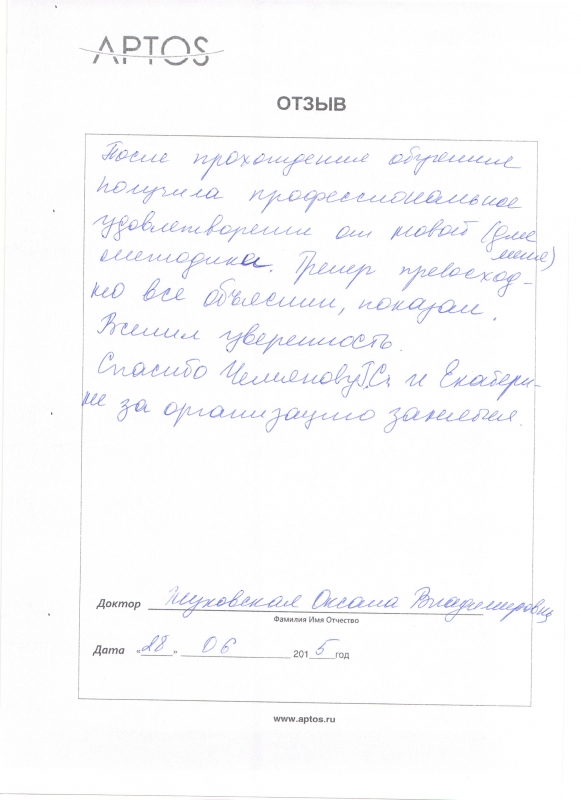 APTOS
ОТЗЫВ
После прохождения обучения
получила профессиональное
удовлетворение от новой (для
меня)
методики. Тренер превосход-
но все объяснил, показал.
Вселил уверенность.
Спасибо Г.С. и Екатери-
не за организацию занятия.
Доктор Жуховская Оксана Владимировна
Фамилия Имя Отчество
Дата «28» 06 2015 год
www.aptos.ru